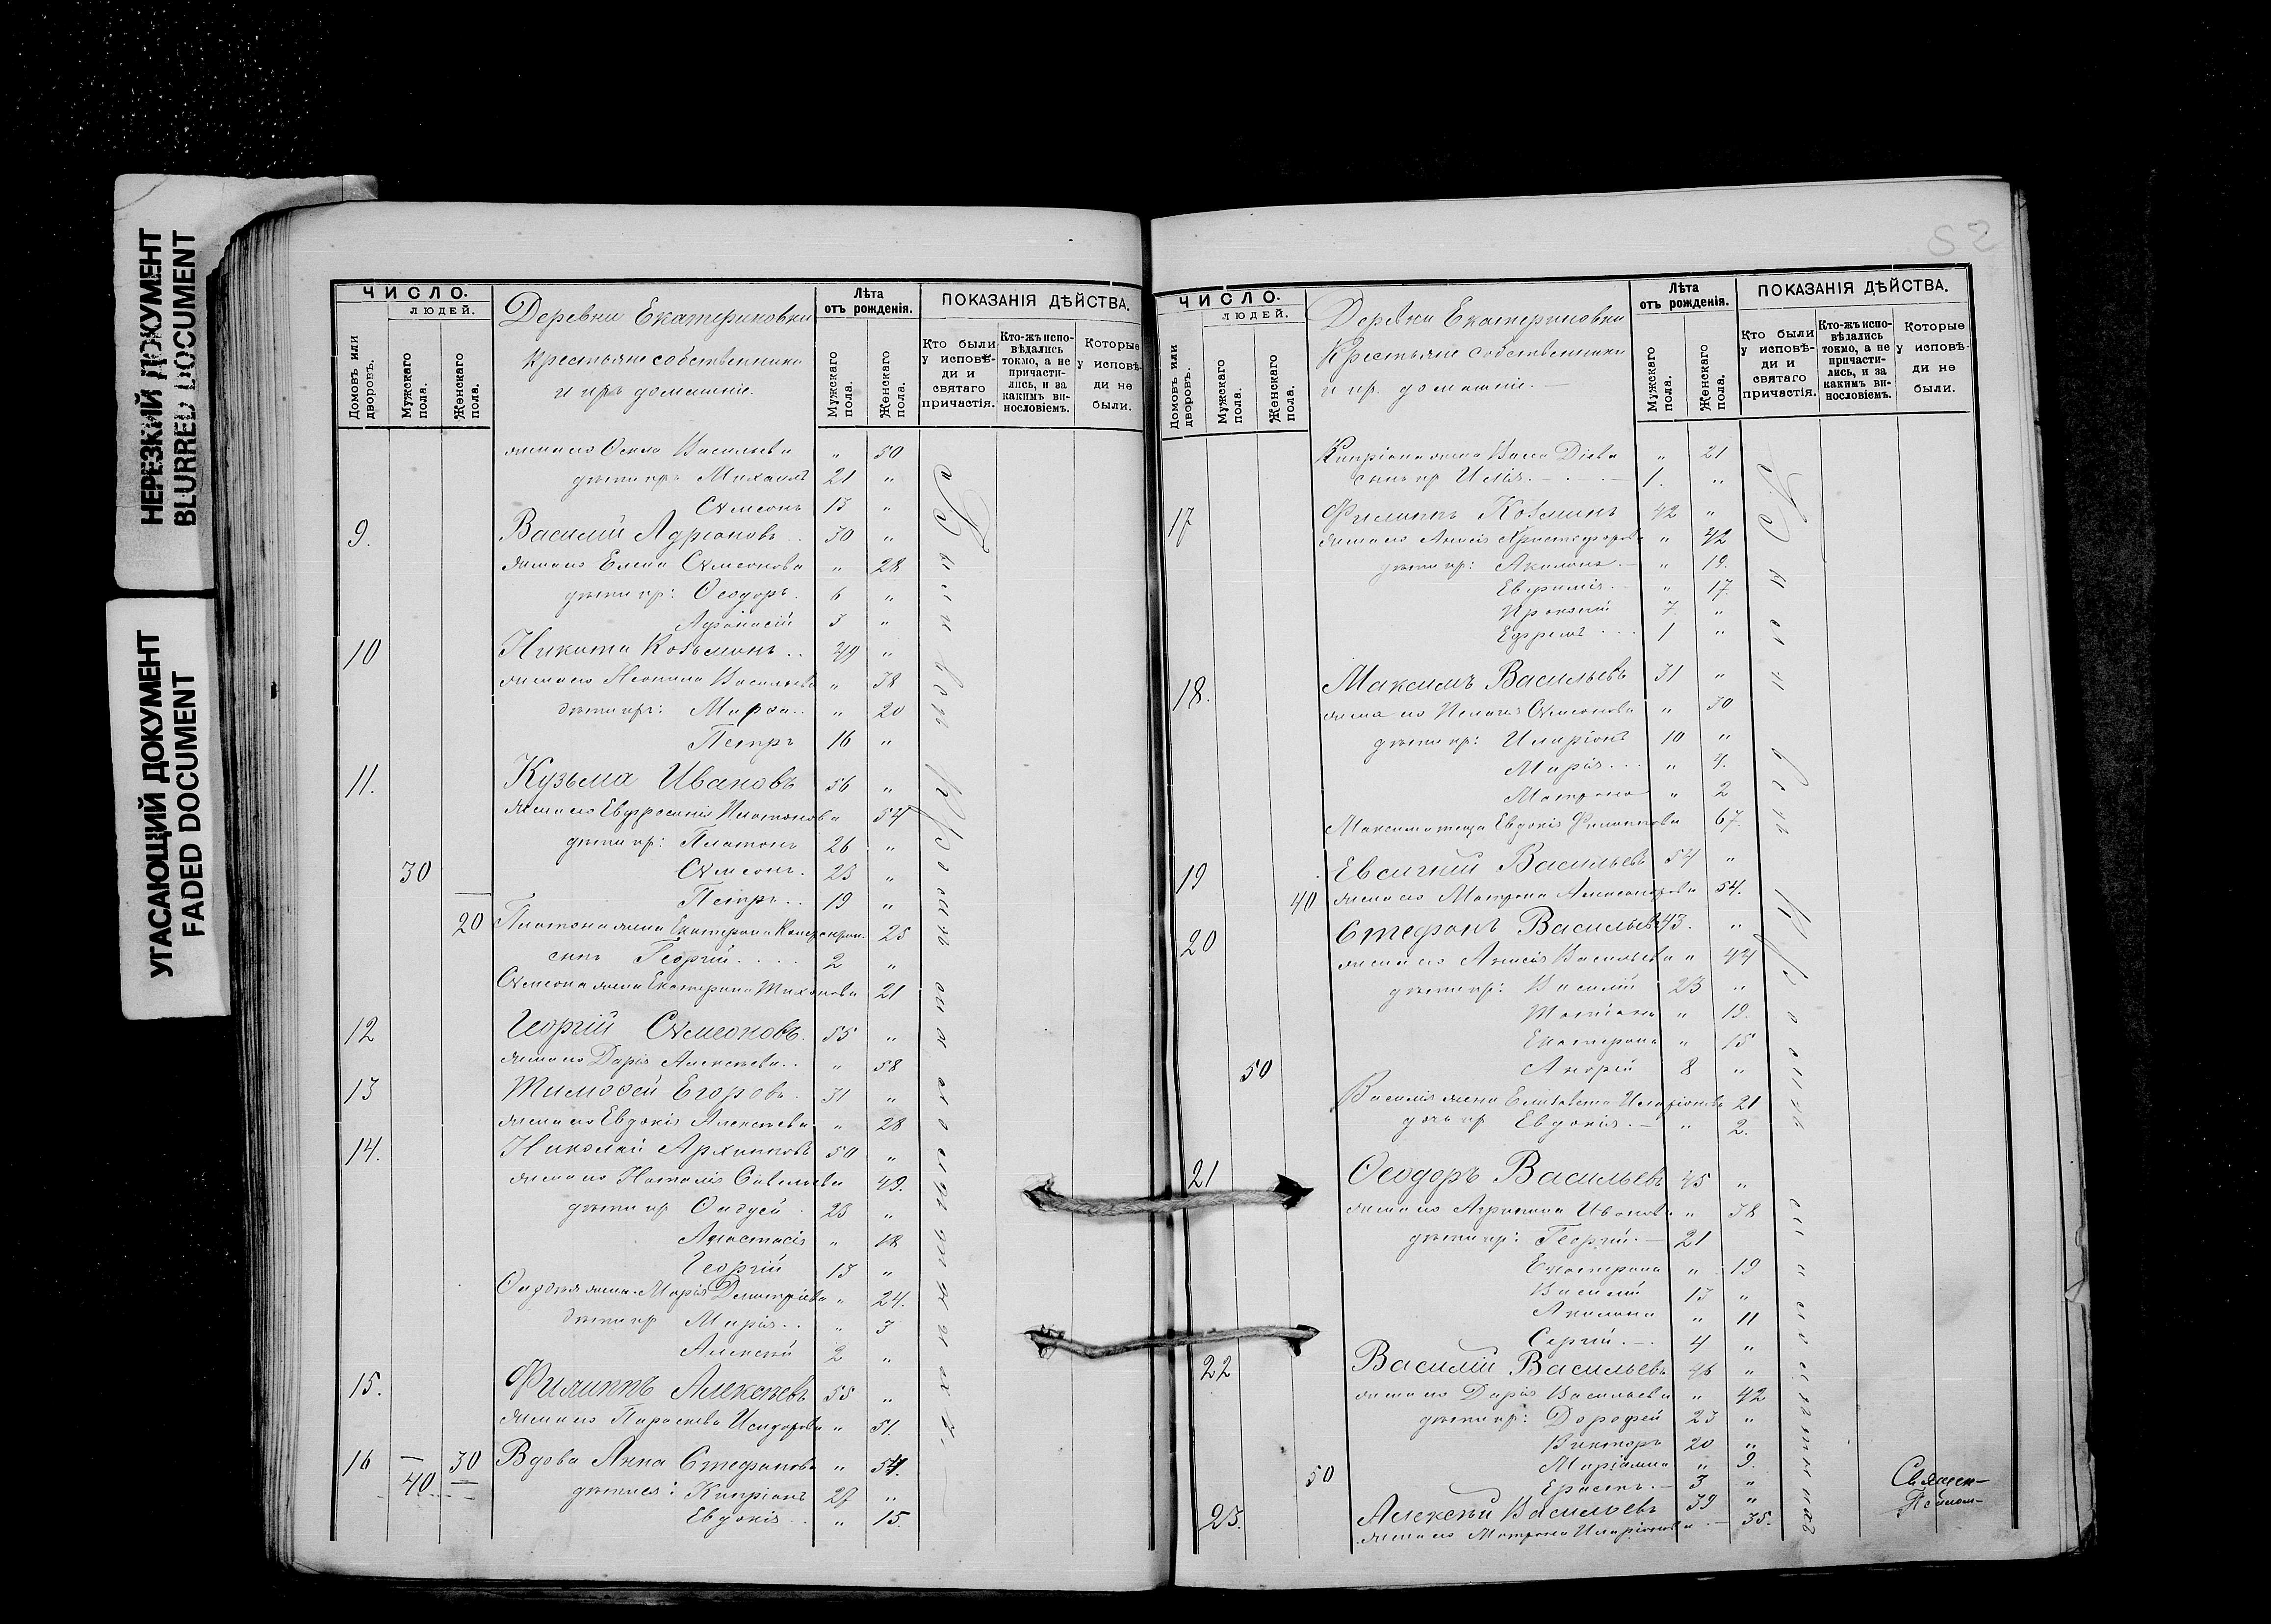 НЕРЕЗКИЙ ДОКУМЕНТ
BLURRED DOCUMENT
УГАСАЮЩИЙ ДОКУМЕНТ
FADED DOCUMENT
ЧИСЛО.
ЛЮДЕЙ.
Домовъ или дворовъ.
Мужскаго пола.
Женскаго пола.
Деревни Екатериновки
Крестьяне собственники
и ихъ домашніе.
Лѣта
отъ рожденія.
Мужскаго пола.
Женскаго пола.
ПОКАЗАНІЯ ДѢЙСТВА.
Кто были у исповѣ-
ди и
святаго
причастія.
Кто-жъ испо-
вѣдались
токмо, а не
причасти-
лись, и за
какимъ ви-
нословіемъ.
Которые
у исповѣ-
ди не
были.
жена его Васильева " 50
дѣти ихъ Михаилъ 21 "
Сѵмеонъ 13 "
9. Василій Адріановъ 30 "
жена его Елена Сѵмеонова " 28
дѣти ихъ: Ѳеодоръ 6 "
Аѳанасій 3 "
10 Никита Козьминъ 39 "
жена его Васильева " 38
дѣти ихъ: " 20
Петръ 16 "
11. Кузьма Ивановъ 56 "
жена его Евфросинія Платонова 54
дѣти ихъ: Платонъ 26 "
30 Сѵмеонъ. 23 "
Петръ 19 "
20 Платона жена Екатерина 25
сынъ Георгій 2 "
Сѵмеона жена Екатерина Тихонова 21
12 Георгій Сѵмеоновъ. 55 "
жена его Дарія Алексѣева " 58
13 Тимоѳей Егоровъ 31 "
жена его Евдокія Алексѣева " 28
14. Николай Архиповъ 50 "
жена его Наталія Савельева 49.
дѣти ихъ 23 "
Анастасія " 18
Георгій 13 "
жена Марія Димитріева " 24.
дѣти ихъ Марія " 3
Алексѣй 2 "
15. Филиппъ Алексѣевъ 55 "
жена его Параскева Исидорова " 51.
16 30 Вдова Анна Стефанова " 54.
40 дѣти ея: Кипріанъ 27 "
Евдокія " 15.
52
ЧИСЛО.
ЛЮДЕЙ.
Домовъ или дворовъ.
Мужскаго пола.
Женскаго пола.
Деревни Екатериновки
Крестьяне собственники
и ихъ домашніе.
Лѣта
отъ рожденія.
Мужскаго пола.
Женскаго пола.
ПОКАЗАНІЯ ДѢЙСТВА.
Кто были
у исповѣ-
ди и
святаго
причастія.
Кто-жъ испо-
вѣдались
токмо, а не
причасти-
лись, и за
какимъ ви-
нословіемъ.
Которые
у исповѣ-
ди не
были.
Кипріана жена " 21
сынъ ихъ Илія 1. "
17 Филиппъ Козьминъ 42 "
жена его Анисія Христофорова " 42
дѣти ихъ: Акилина " 19.
Евѳимія " 17.
Прокопій 7. "
Ефремъ 1 "
18. Максимъ Васильевъ 31 "
жена его Пелагія Сѵмеонова " 30
дѣти ихъ: Иларіонъ 10 "
Марія "
Матрона " 2
Максима теща Евдокія Филиппова 67.
19 Евсигній Васильевъ 54 "
40 жена его Матрона Александрова 54.
20 Стефанъ Васильевъ 43. "
жена его Анисія Васильева " 44
дѣти ихъ: Василій 23 "
Татіана " 19.
Екатерина " 15
50 Андрей 8 "
Василія жена Елизавета Иларіонова 21
дочь ихъ Евдокія " 2.
21 Ѳеодоръ Васильевъ 45 "
жена его Агрипина Иванова " 38
дѣти ихъ: Георгій 21
Екатерина " 19
Василій 13 "
Акилина " 11
Сергій 4 "
22 Василій Васильевъ 46 "
жена его Дарія Васильева " 42
дѣти ихъ: Дорофей 23 "
Викторъ 20 "
Маріамна " 9.
50 Ерастъ 3 "
23. Алексѣй Васильевъ 39 "
жена его Матрона Иларіонова 35.
Священ-
Псалом-